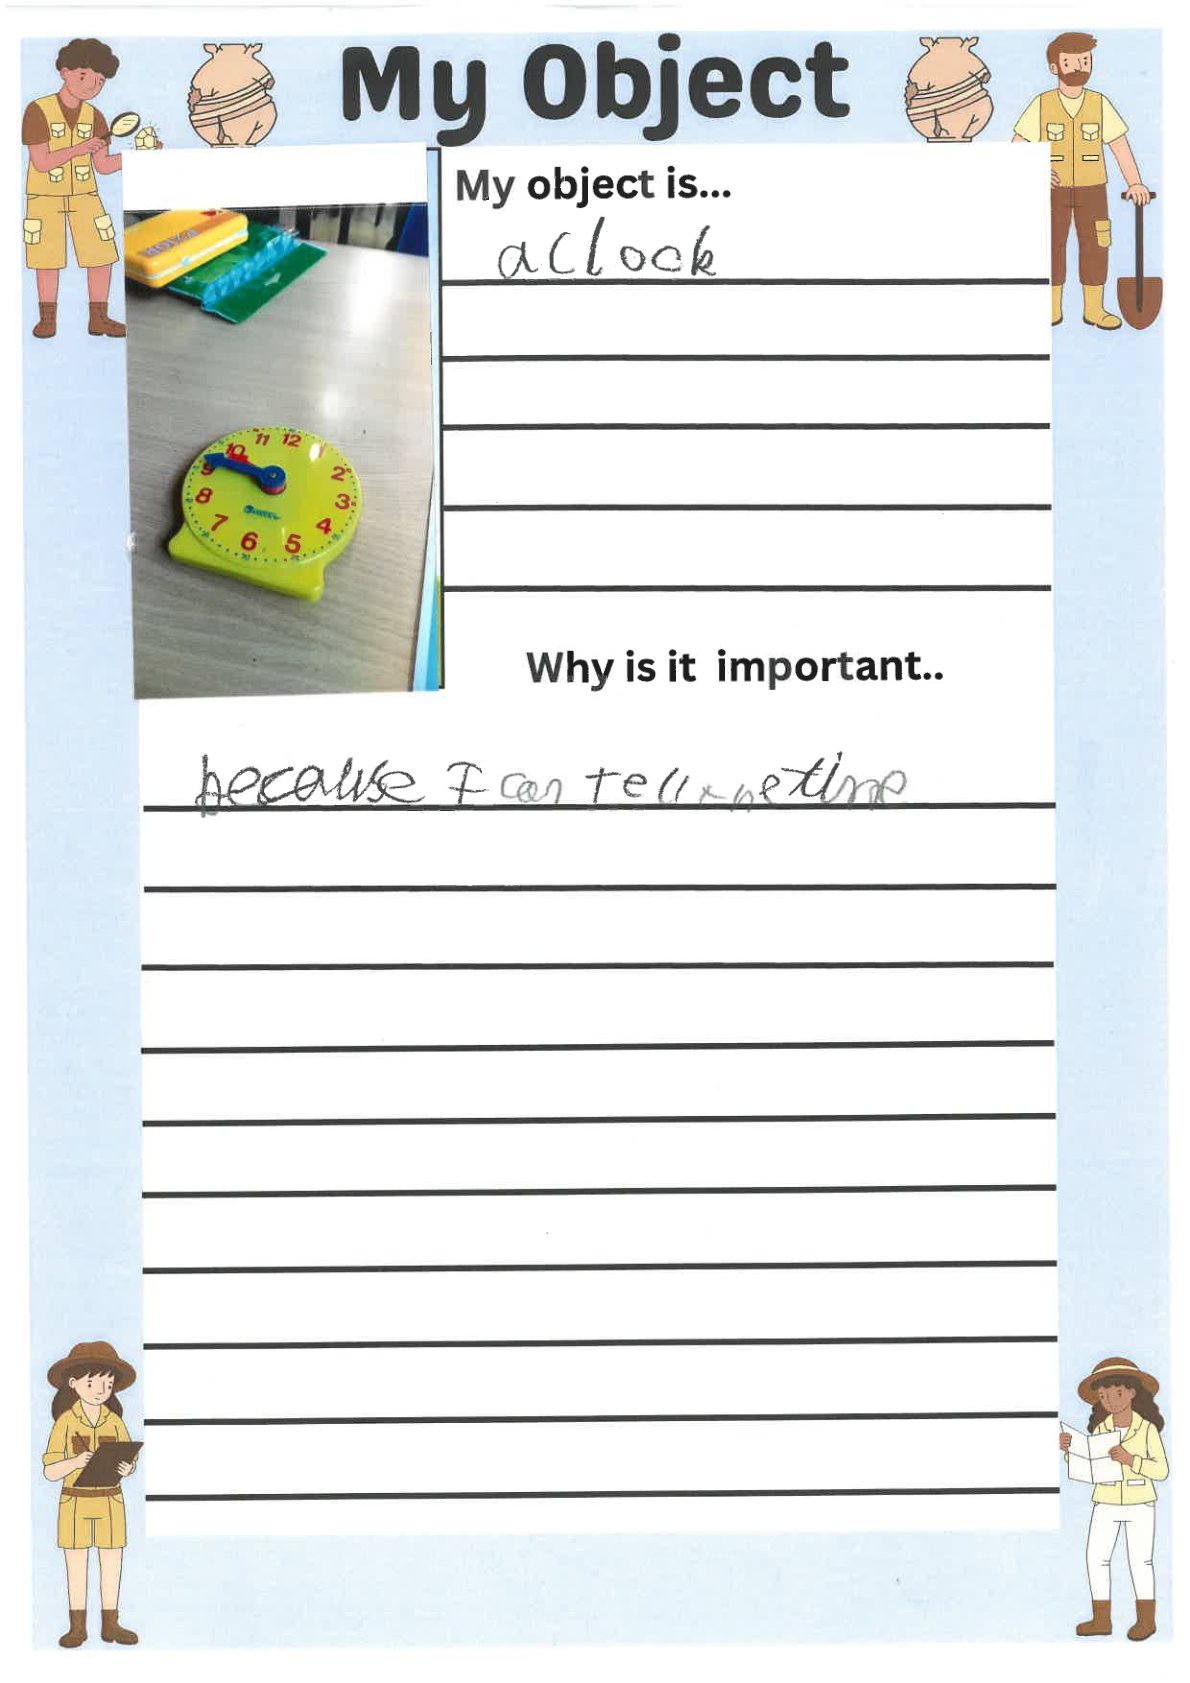 My Object
My object is...
a clock
11 12 1
10 2
9 3
8 4
7 6 5
Why is it important..
because I can tell the time